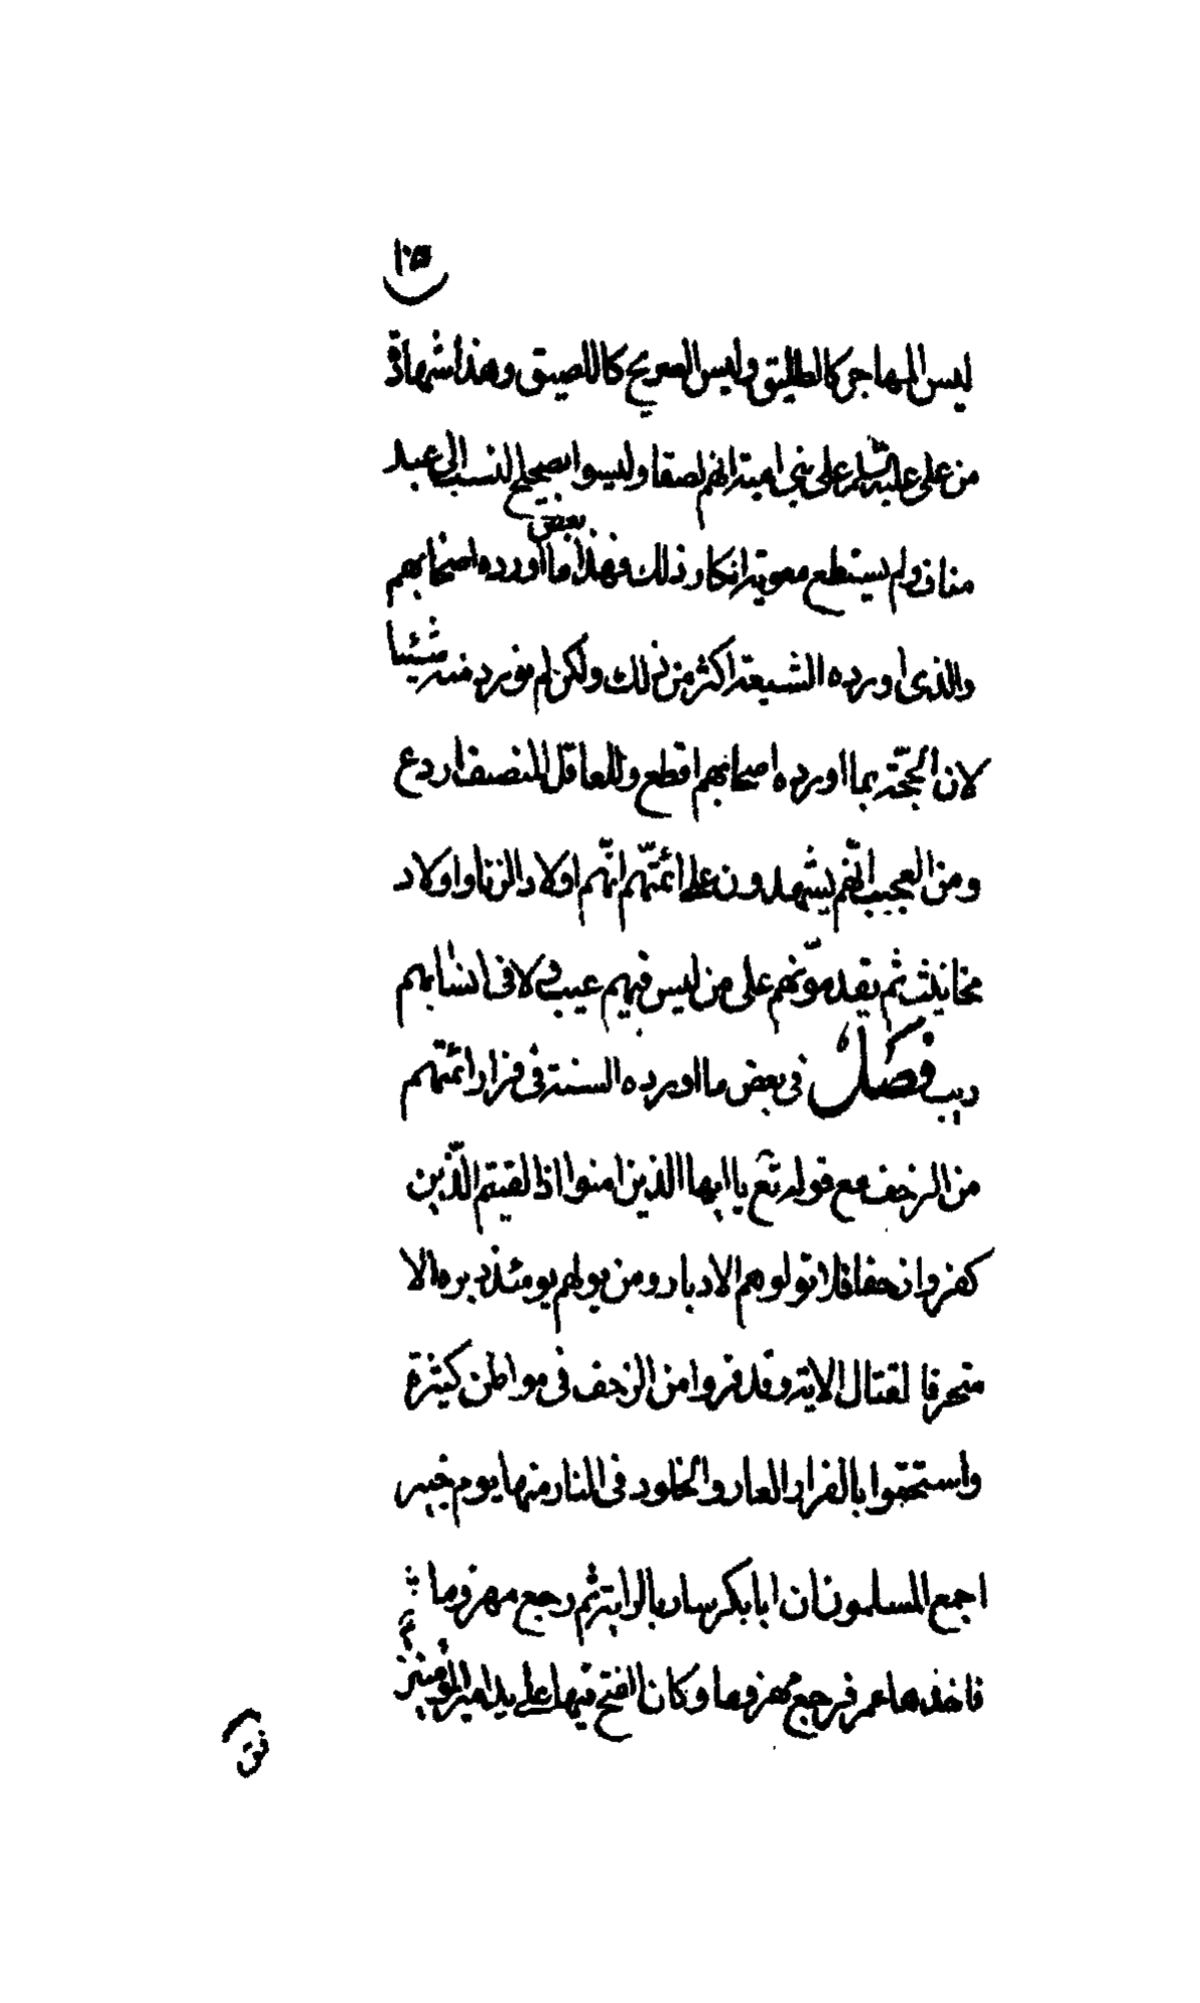 ١٠٥
ليس المهاجر كالطليق وليس الصريح كاللصيق وهذا شهادة
من على عليه السلم على بنى امية انهم لصقا وليسوا بصحيح النسب الى عبد
بعض
مناف ولم يستطع معوية انكار ذلك فهذا ما اورده اصحابهم
والذى اورده الشيعة اكثر من ذلك ولكن لم نورد منه شيئا
لان الحجّة بما اورده اصحابهم اقطع وللعاقل المنصف اردع
ومن العجيب انّهم يشهدون على ائمّتهم انّهم اولاد الزنا واولاد
مخانيث ثم يقدمّونهم على من ليس فيهم عيب لا فى انسابهم
ريب فصل فى بعض ما اورده السنة فى فرار ائمتهم
من الزحف مع قوله تع يا ايها الذين امنوا اذا لقيتم الّذين
كفروا زحفا فلا تولوهم الادبار ومن يولهم يومئذ دبره الا
متحرفا لقتال الاية وقد فروا من الزحف فى مواطن كثيرة
واستحقوا بالفرار العار والخلود فى النار منها يوم خيبر
اجمع المسلمون ان ابا بكر سار بالراية ثم رجع مهزوما
فاخذها عمر فرجع مهزوما وكان الفتح فيها على يد امير المؤمنين